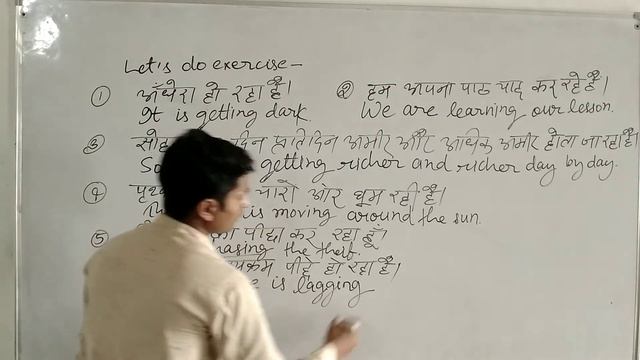 Let's do exercise –
① अँधेरा हो रहा है।
It is getting dark.
② हम अपना पाठ याद कर रहे हैं।
We are learning our lesson.
③ दिन प्रतिदिन अमीर और अधिक अमीर होता जा रहा है।
getting richer and richer day by day.
④ चारो ओर घूम रही है।
is moving around the sun.
⑤ का पीछा कर रहा हूँ।
the theft.
पीछे हो रहा है।
is lagging